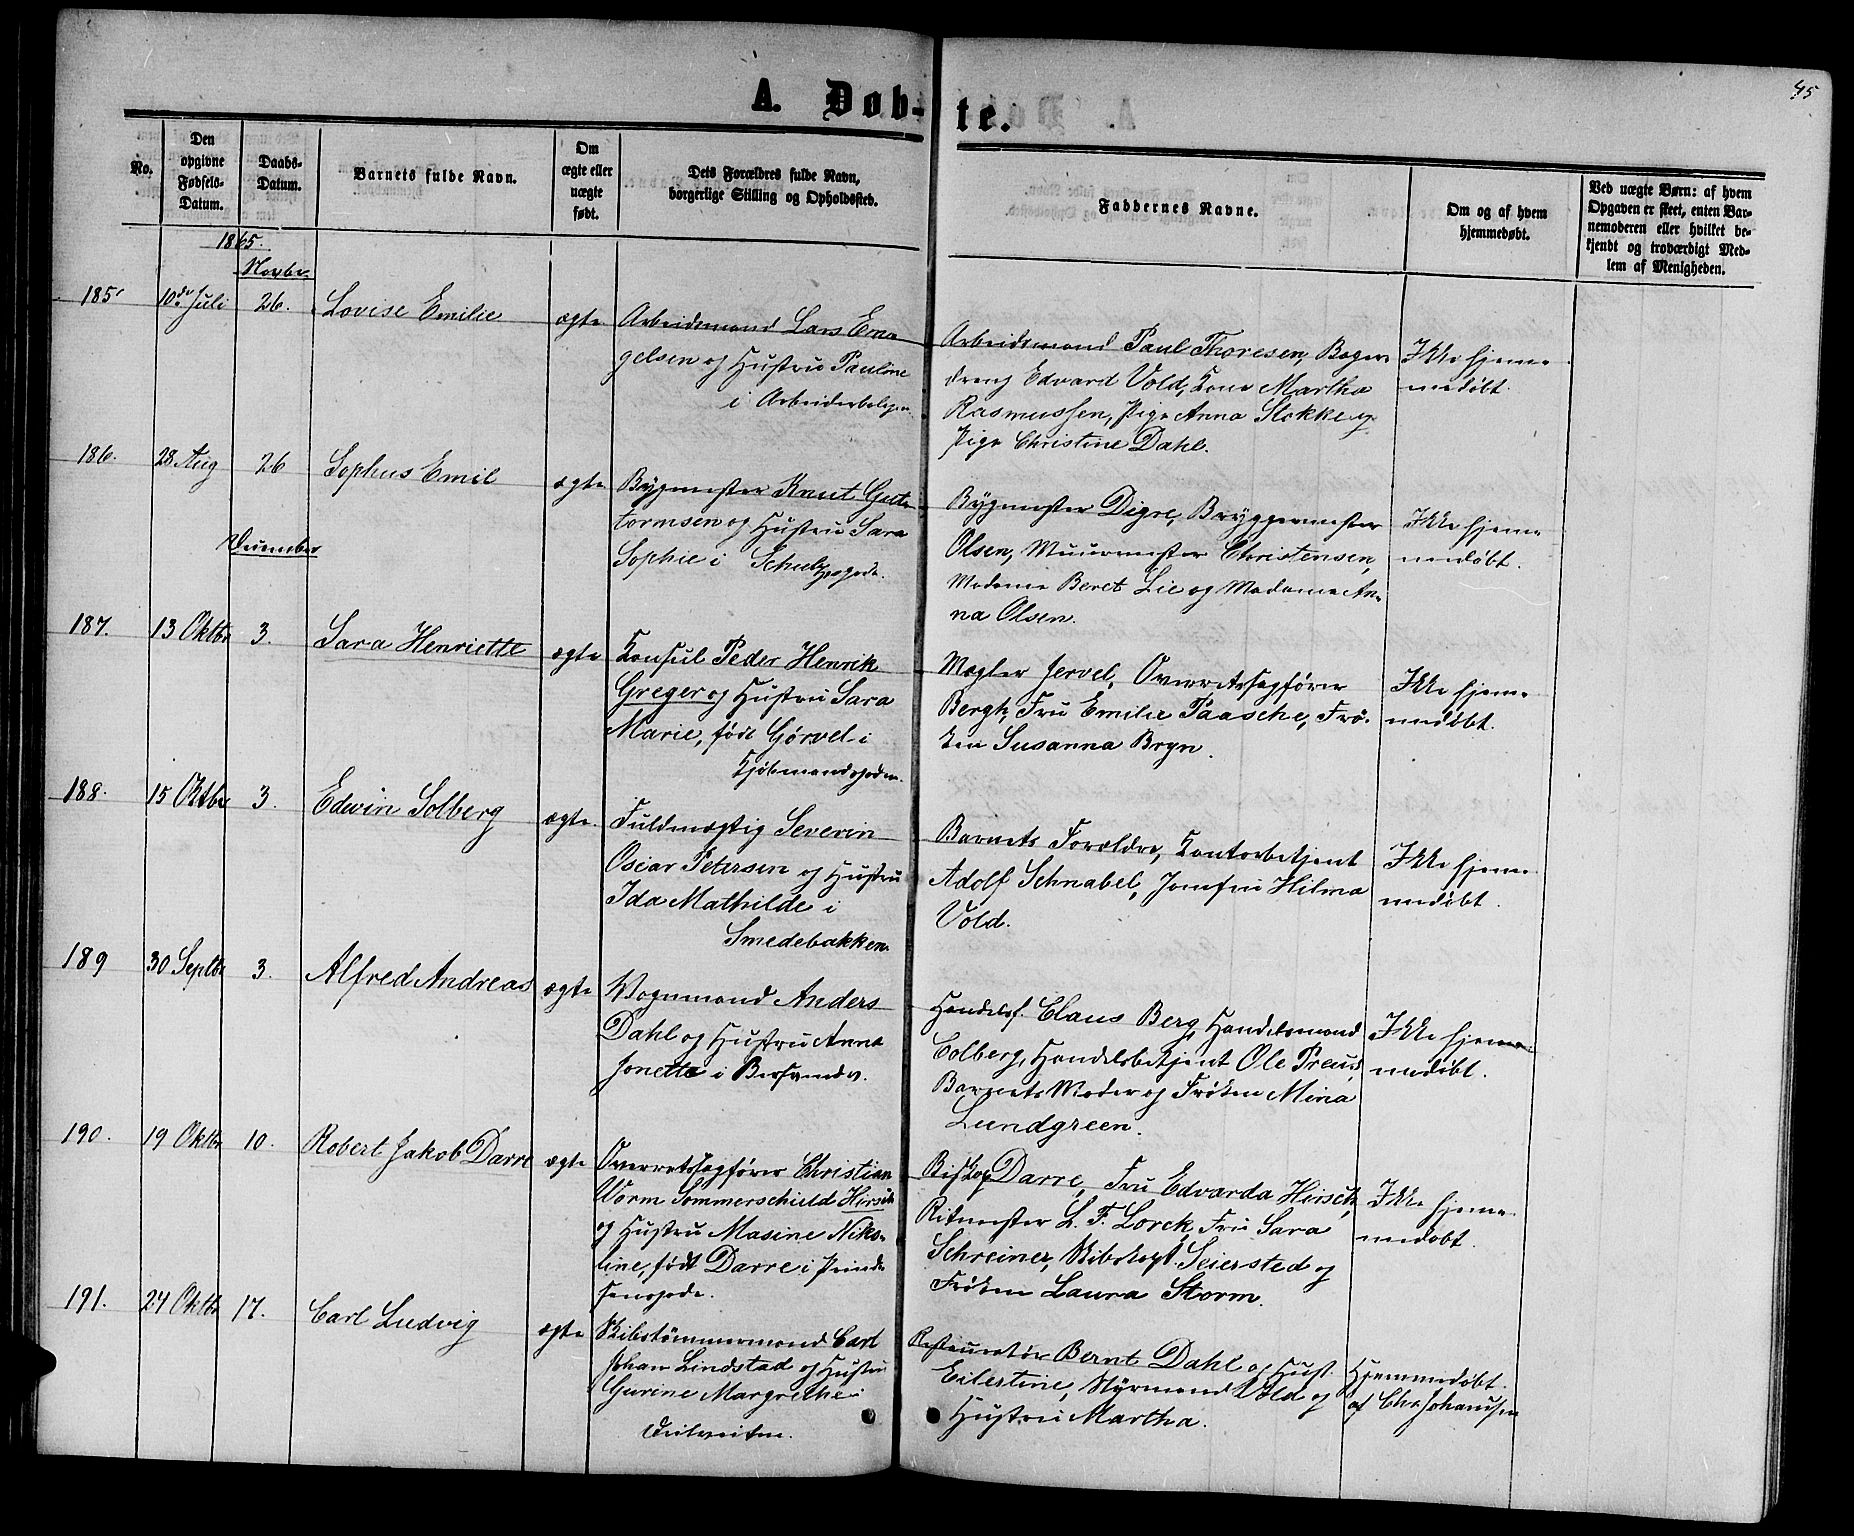 45
A. Døb-te.
No.
Den opgivne Fødsels-Datum.
Daabs-Datum.
Barnets fulde Navn.
Om ægte eller uægte født.
Dets Forældres fulde Navn, borgerlige Stilling og Opholdssted.
Faddernes Navne.
Om og af hvem hjemmedøbt.
Ved uægte Børn: af hvem Opgaven er skeet, enten Barnemoderen eller hvilket bekjendt og troværdigt Medlem af Menigheden.
1865.
Novbr.
185
10de Juli
26.
Lovise Emilie
ægte
Arbeidsmand Lars En-
gelsen og Hustru Pauline
i Arbeiderbolig
Arbeidsmand Paul Thoresen, Bager-
dreng Edvard Vold, Kone Martha
Rasmussen, Pige Anna Stokke og
Pige Christine Dahl.
Ikke hjem-
medøbt.
186.
28 Aug
26
Sophus Emil
ægte
Bygmester Knut Gut-
tormsen og Hustru Sara
Sophie i Schultzgade.
Bygmester Digre, Bryggermester
Olsen, Muurmester Christensen,
Madame Beret Lie og Madame An-
na Olsen.
Ikke hjem-
medøbt.
December
187.
13 Oktbr
3.
Sara Henriette
ægte
Konsul Peder Henrik
Greger og Hustru Sara
Marie, født Gørvel i
Kjøbmandsgaden.
Mægler Jervel, Overretssagfører
Bergh, Fru Emilie Paasche, Frø-
ken Susanna Bryn.
Ikke hjem-
medøbt.
188.
15 Oktbr
3.
Edwin Solberg
ægte
Fuldmægtig Severin
Oscar Petersen og Hustru
Ida Mathilde i
Smedebakken.
Barnets Forældre, Kontorbetjent
Adolf Schnabel, Jomfru Hilma
Vold.
Ikke hjem-
medøbt.
189
30 Septbr
3.
Alfred Andreas
ægte
Vognmand Anders
Dahl og Hustru Anna
Jonette i
Handelsf. Claus Berg, Handelsmand
Colberg, Handelsbetjent Ole Preus,
Barnets Moder og Frøken Mina
Lundgreen.
Ikke hjem-
medøbt.
190.
19 Oktbr
10.
Robert Jakob Darre
ægte
Overretssagfører Christian
Worm Sommerschield Hirsch
og Hustru Masine Niko-
line, født Darre i Prind-
sensgade.
Biskop Darre, Fru Edvarda Hirsch,
Ritmester L. F. Lorck, Fru Sara
Schreiner, Skibskapt. Seiersted og
Frøken Laura Storm.
Ikke hjem-
medøbt.
191.
24 Oktbr
17.
Carl Ludvig
ægte
Skibstømmermand Carl
Johan Lindstad og Hustru
Gurine Margrethe i
Restauratør Bernt Dahl og Hust.
Eilertine, Styrmand Vold og
Hustru Martha.
Hjemmedøbt
af Chr. Johansen